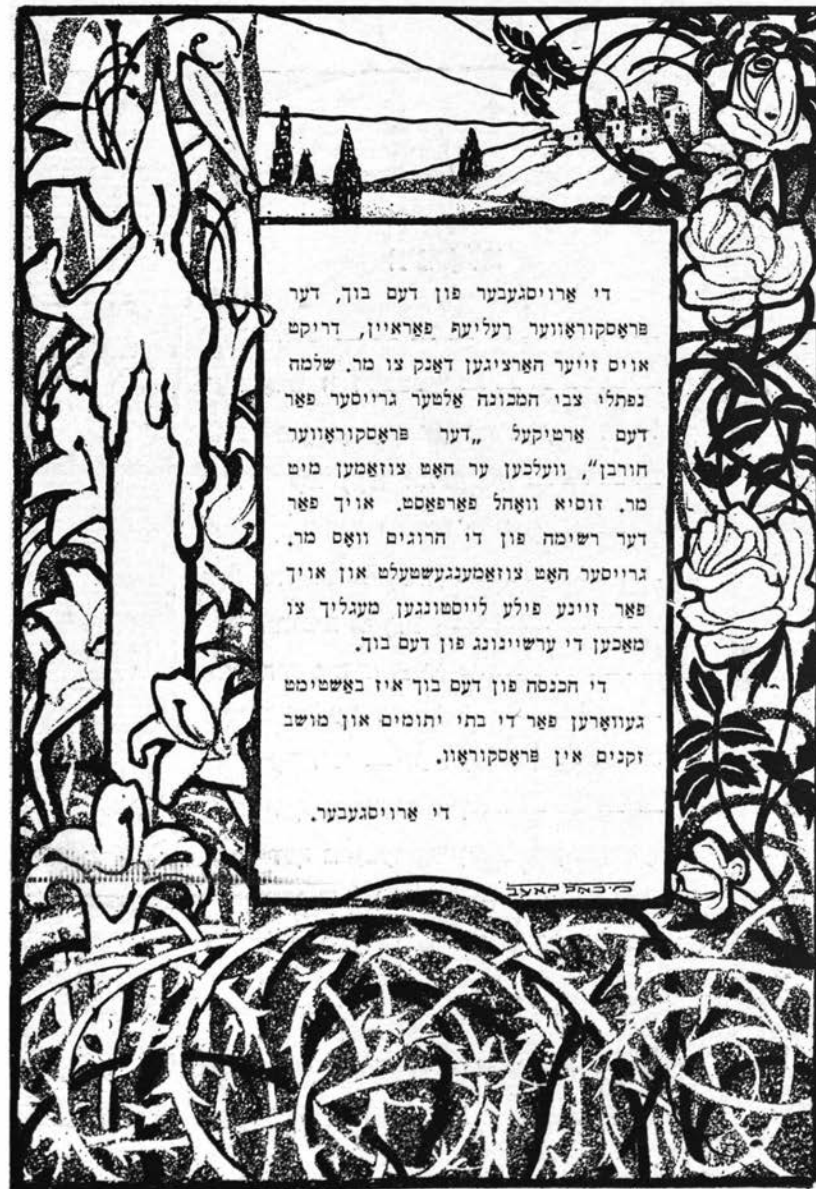 די ארויסגעבער פון דעם בוך, דער
פּראָסקוראָווער רעליעף פאַראיין, דריקט
אויס זייער האַרציגען דאַנק צו מר. שלמה
נפתלי צבי המכונה אַלטער גרייסער פאַר
דעם אַרטיקעל „דער פּראָסקוראָווער
חורבן", וועלכען ער האָט צוזאַמען מיט
מר. זוסיא וואָהל פאַרפאַסט. אויך פאַר
דער רשימה פון די הרוגים וואָס מר.
גרייסער האָט צוזאַמענגעשטעלט און אויך
פאַר זיינע פילע לייסטונגען מעגליך צו
מאַכען די ערשיינונג פון דעם בוך.
די הכנסה פון דעם בוך איז באַשטימט
געוואָרען פאַר די בתי יתומים און מושב
זקנים אין פּראָסקוראָוו.
די ארויסגעבער.